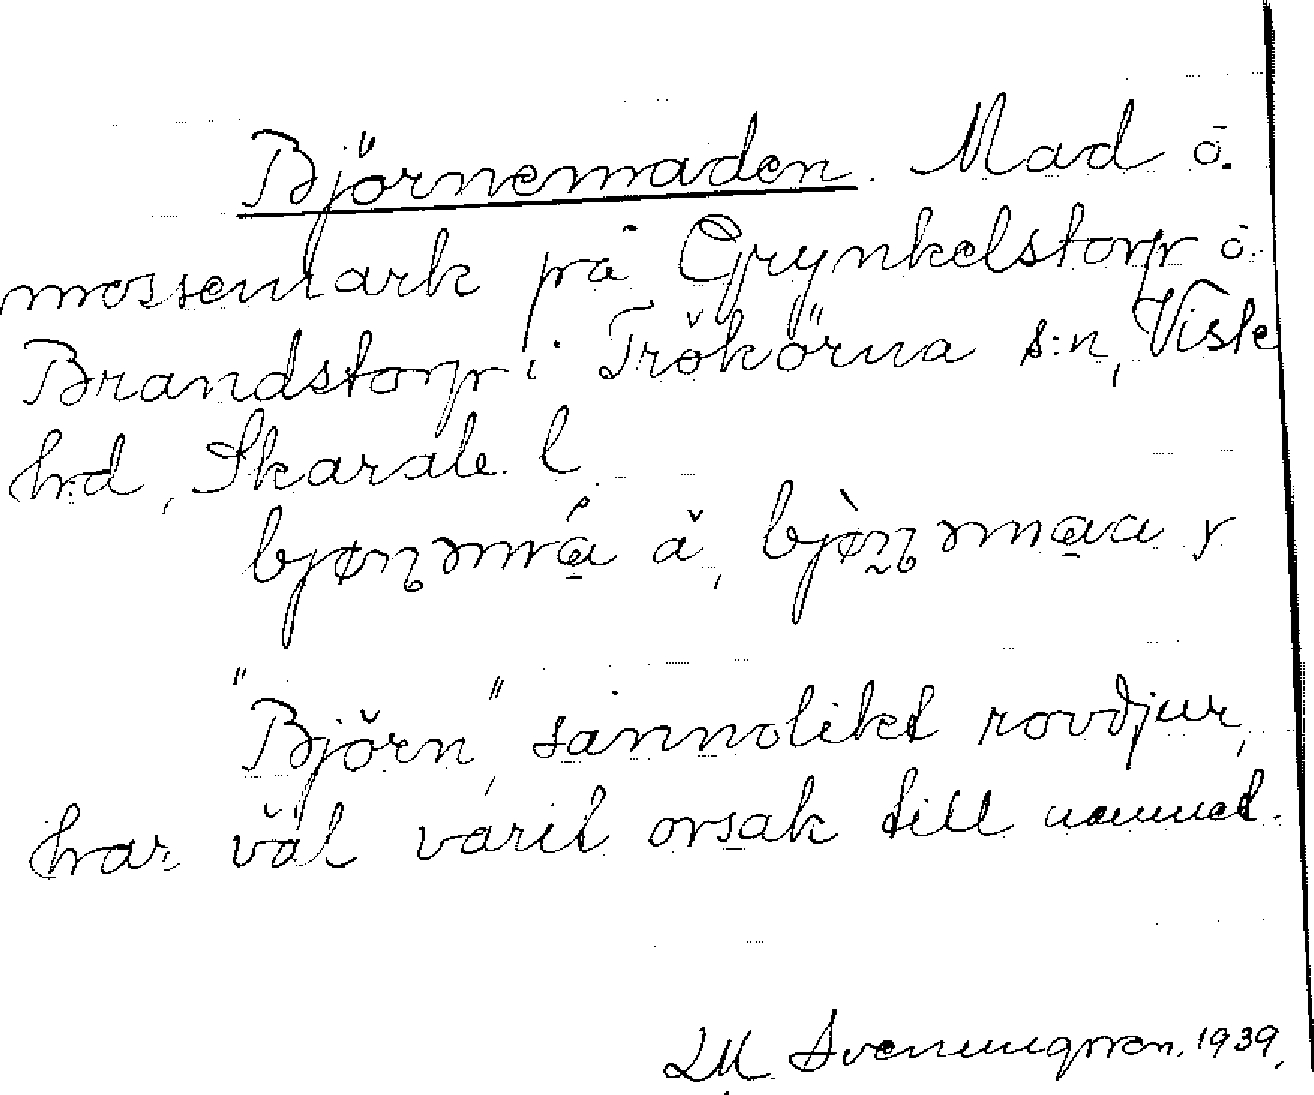 Björnemaden. Mad o.
mossemark på Grynkelstorp o.
Brandstorp i Trökörna s:n, Viste
hd, Skarab. l.
"Björn", sannolikt rovdjur,
har väl varit orsak till namnet.
LM Svenungsson. 1939.